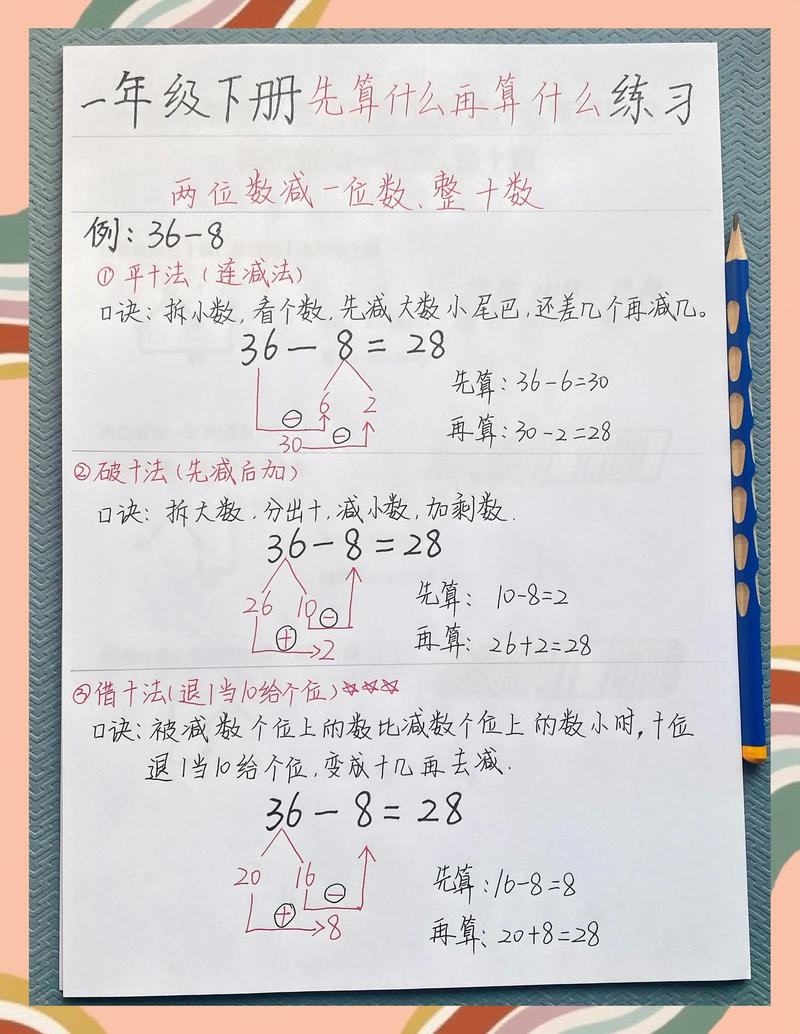 一年级下册先算什么再算什么练习
两位数减一位数、整十数
例：36-8
①平十法（连减法）
口诀：拆小数，看个数，先减大数小尾巴，还差几个再减几。
36-8=28
6 2
先算：36-6=30
⊖
30 ⊖
再算：30-2=28
②破十法（先减后加）
口诀：拆大数，分出十，减小数，加剩数.
36-8=28
26 10
先算：10-8=2
⊕ ⊖
2
再算：26+2=28
③借十法（退1当10给个位）☆☆☆
口诀：被减数个位上的数比减数个位上的数小时，十位
退1当10给个位，变成十几再去减.
36-8=28
20 16
先算：16-8=8
⊕ ⊖
8
再算：20+8=28